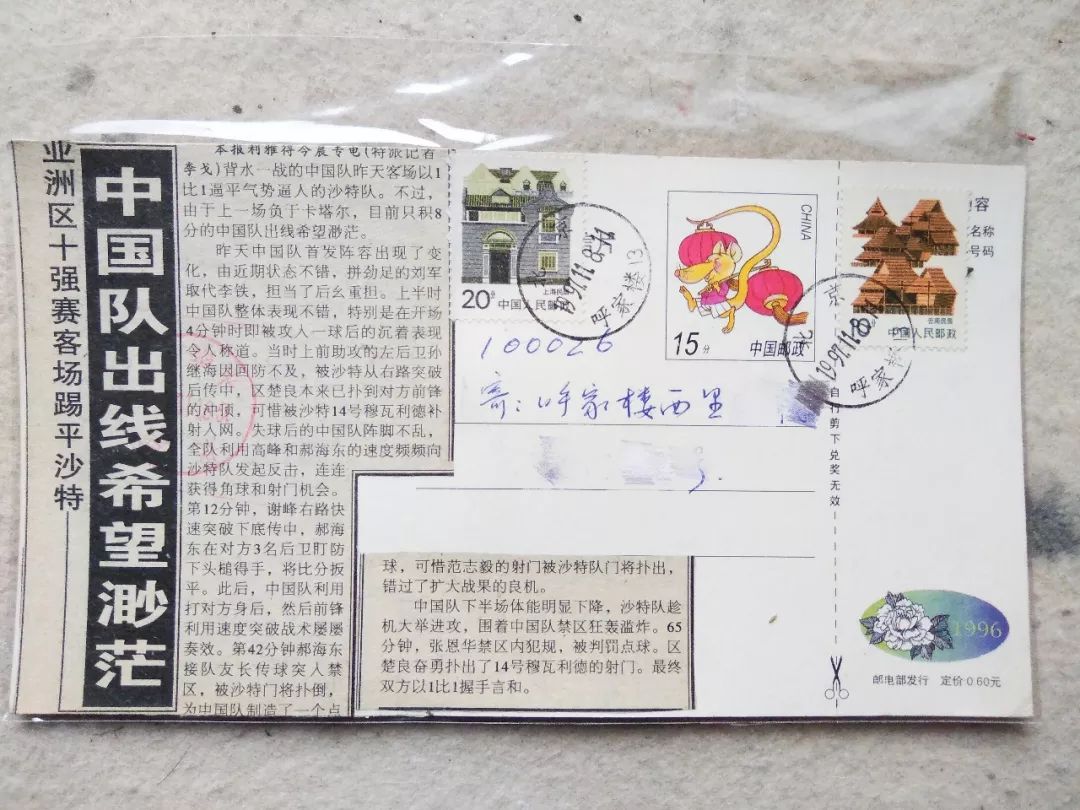 亚洲区十强赛客场踢平沙特
中国队出线希望渺茫
本报利雅得今晨专电(特派记者
李戈)背水一战的中国队昨天客场以1
比1逼平气势逼人的沙特队。不过，
由于上一场负于卡塔尔，目前只积8
分的中国队出线希望渺茫。
昨天中国队首发阵容出现了变
化，由近期状态不错，拼劲足的刘军
取代李铁，担当了后幺重担。上半时
中国队整体表现不错，特别是在开场
4分钟时即被攻入一球后的沉着表现
令人称道。当时上前助攻的左后卫孙
继海因回防不及，被沙特从右路突破
后传中，区楚良本来已扑到对方前锋
的冲顶，可惜被沙特14号穆瓦利德补
射入网。失球后的中国队阵脚不乱，
全队利用高峰和郝海东的速度频频向
沙特队发起反击，连连
获得角球和射门机会。
第12分钟，谢峰右路快
速突破下底传中，郝海
东在对方3名后卫盯防
下头槌得手，将比分扳
平。此后，中国队利用
打对方身后，然后前锋
利用速度突破战术屡屡
奏效。第42分钟郝海东
接队友长传球突入禁
区，被沙特门将扑倒，
为中国队制造了一个点
球，可惜范志毅的射门被沙特队门将扑出，
错过了扩大战果的良机。
中国队下半场体能明显下降，沙特队趁
机大举进攻，围着中国队禁区狂轰滥炸。65
分钟，张恩华禁区内犯规，被判罚点球。区
楚良奋勇扑出了14号穆瓦利德的射门。最终
双方以1比1握手言和。
上海民居
20分 中国人民邮政
北京
1997.11.8
呼家楼13
CHINA
15分 中国邮政
云南民居
中国人民邮政
北京
1997.11.8
呼家楼
容
名称
号码
100026
寄：呼家楼西里
自行剪下兑奖无效
1996
邮电部发行 定价0.60元